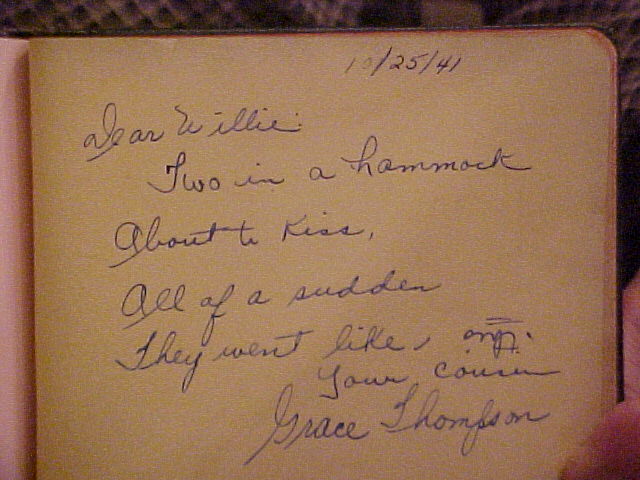 10/25/41
Dear Willie:
Two in a hammock
About to Kiss,
All of a sudden
They went like,
Your cousin
Grace Thompson